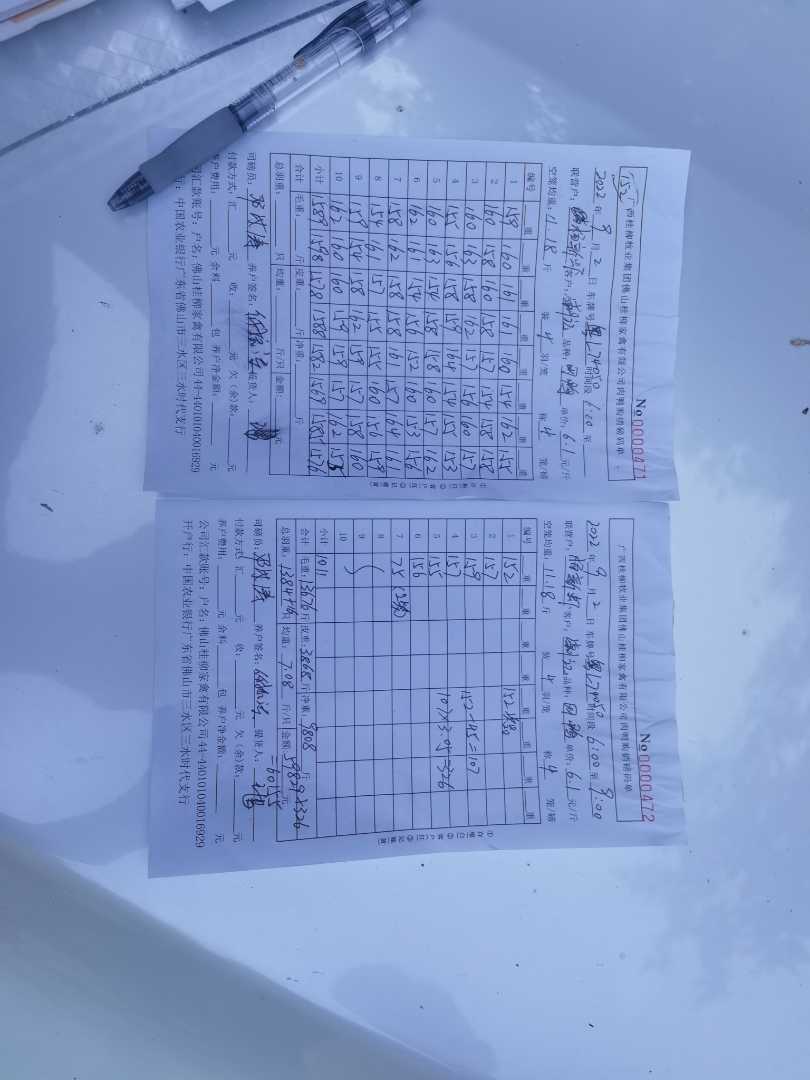 No 0000471
152
广西桂柳牧业集团佛山桂柳家禽有限公司肉鸭购销磅码单
2022年 9月 2日 车牌号 粤L74050 时间段 6:00 至
联营户: 客户: 品种: 单价: 6.1 元/斤
空笼均重: 11.18 斤 装 4 羽/笼 称 4 笼/磅
编号 重 重 重 重 重 重 重 重
1 159 160 161 161 160 154 162 155
2 160 158 160 158 157 154 158 158
3 160 163 158 162 157 156 160 157
4 155 156 158 159 164 154 155 153
5 160 163 154 158 158 160 157 162
6 162 161 154 156 152 160 153 156
7 158 162 158 158 161 157 164 161
8 154 161 157 155 155 160 156 159
9 159 154 158 162 157 157 158 160
10 162 160 160 159 158 157 162 155
小计 1589 1598 1578 1588 1582 1569 1585 1576
合计 毛重: 斤 皮重: 斤 净重: 斤
总羽重: 只 均重: 斤/只 金额: 元
司磅员: 养户签名: 提货人:
付款方式: 汇 元 收: 元 欠(余)款: 元
养户费用: 元 余料 包 养户净金额: 元
公司汇款账号: 户名: 佛山桂柳家禽有限公司44-440101040016929
开户行: 中国农业银行广东省佛山市三水区三水时代支行
No 0000472
广西桂柳牧业集团佛山桂柳家禽有限公司肉鸭购销磅码单
2022年 9月 2日 车牌号 粤L74050 时间段 6:00 至 9:00
联营户: 客户: 品种: 单价: 6.1 元/斤
空笼均重: 11.18 斤 装 4 羽/笼 称 4 笼/磅
编号 重 重 重 重 重 重 重 重
1 152
2 157
3 159 152-45=107
4 157 107×3.05=326
5 155
6 156
7 75
8
9
10
小计 1011
合计 毛重: 13676 斤 皮重: 3868 斤 净重: 9808 斤
总羽重: 1384 只 均重: 7.08 斤/只 金额: 59829+326 元
=60155
司磅员: 养户签名: 提货人:
付款方式: 汇 元 收: 元 欠(余)款: 元
养户费用: 元 余料 包 养户净金额: 元
公司汇款账号: 户名: 佛山桂柳家禽有限公司44-440101040016929
开户行: 中国农业银行广东省佛山市三水区三水时代支行